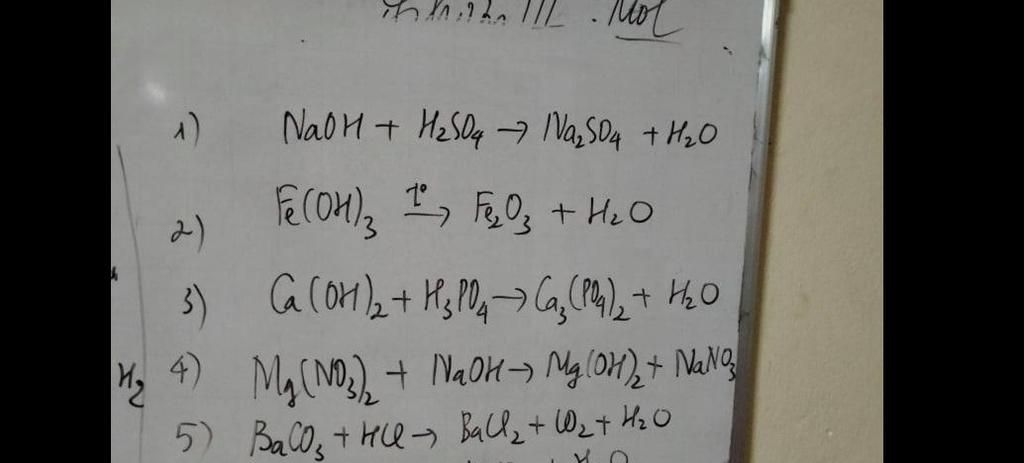 III. Mol
1) NaOH + H₂SO₄ → Na₂SO₄ + H₂O
2) Fe(OH)₃ t° → Fe₂O₃ + H₂O
3) Ca(OH)₂ + H₃PO₄ → Ca₃(PO₄)₂ + H₂O
H₂
4) Mg(NO₃)₂ + NaOH → Mg(OH)₂ + NaNO₃
5) BaCO₃ + HCl → BaCl₂ + CO₂ + H₂O